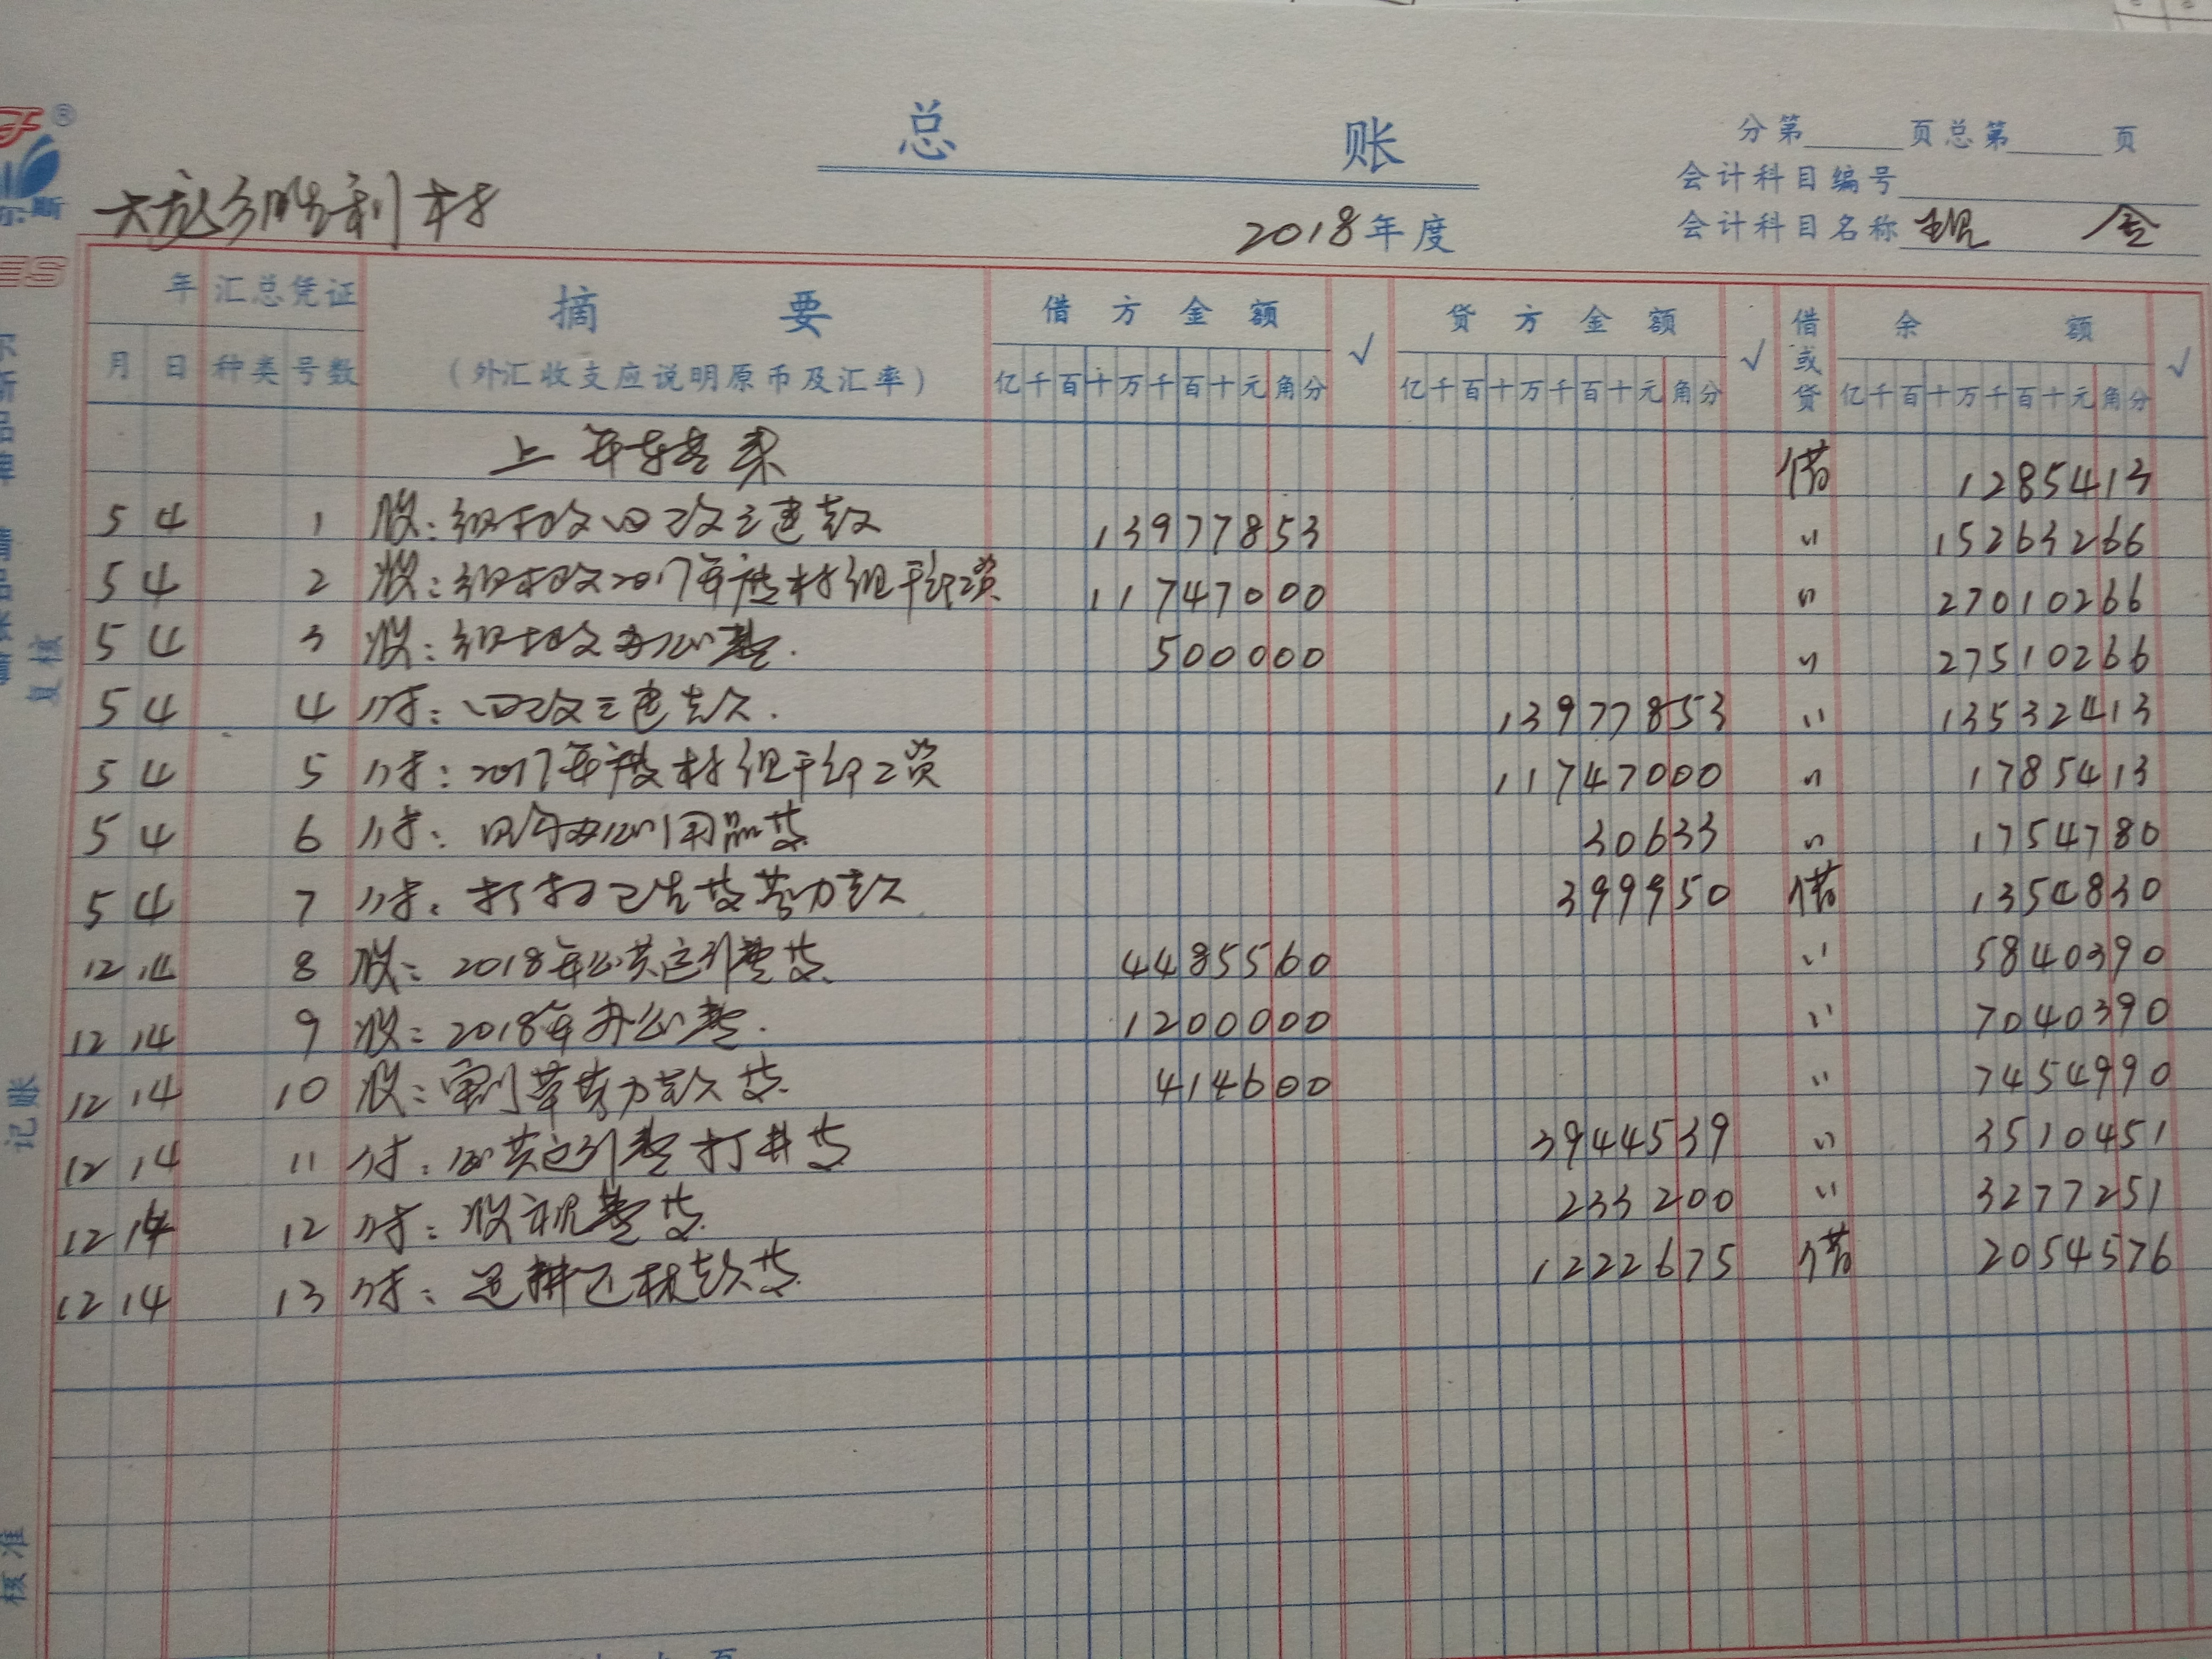 总 账
分第 页总第 页
会计科目编号
大龙乡胜利村
2018年度
会计科目名称 现 金
年 汇总凭证 摘 要 借方金额 √ 贷方金额 √ 借或贷 余 额 √
月 日 种类 号数 (外汇收支应说明原币及汇率) 亿千百十万千百十元角分 亿千百十万千百十元角分 亿千百十万千百十元角分
上年结 借 1285413
5 4 1 收: 款 13977853 〃 15263266
5 4 2 收: 2017年度村组干部工资 11747000 〃 27010266
5 4 3 收: 办公费. 500000 〃 27510266
5 4 4 付: 款. 13977853 〃 13532413
5 4 5 付: 2017年度村组干部工资 11747000 〃 1785413
5 4 6 付: 办公用品款 30633 〃 1754780
5 4 7 付: 打扫卫生费劳力款 399950 借 1354830
12 14 8 收: 2018年公共运行费 4485560 〃 5840390
12 14 9 收: 2018年办公费. 1200000 〃 7040390
12 14 10 收: 草劳力款 414600 〃 7454990
12 14 11 付: 公共运行费 打井 3944539 〃 3510451
12 14 12 付: 收视费 233200 〃 3277251
12 14 13 付: 退耕还林款 1222675 借 2054576
复核
记账
核准